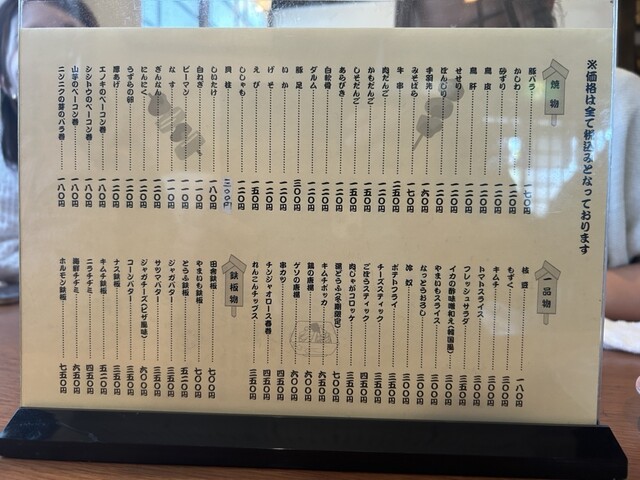 ※価格は全て税込みとなっております
焼物
豚バラ 一七〇円
かしわ 一二〇円
砂ずり 一二〇円
鳥皮 一二〇円
鳥肝 一二〇円
せせり
ぼんじり
手羽元 一六〇円
みそばら 一七〇円
牛串 二五〇円
肉だんご 一二〇円
かもだんご 一五〇円
しそだんご 一五〇円
あらびき 一五〇円
白軟骨 一二〇円
ダルム 一二〇円
豚足 三〇〇円
いか 一二〇円
げそ 一二〇円
えび 一五〇円
ししゃも 一二〇円
貝柱 二〇〇円
しいたけ 一八〇円
白ねぎ 一二〇円
ピーマン 一二〇円
なす 一一〇円
ぎんなん 一二〇円
にんにく 一二〇円
うずらの卵 一二〇円
厚あげ 一二〇円
エノキのベーコン巻 一八〇円
シシトウのベーコン巻 一八〇円
山芋のベーコン巻 一八〇円
ニンニクの芽のバラ巻 一八〇円
一品物
枝豆 一八〇円
もずく 三〇〇円
キムチ 三〇〇円
トマトスライス 三〇〇円
フレッシュサラダ
イカの酢味噌和え(韓国風) 三〇〇円
やまいもスライス 三〇〇円
なっとうおろし 三〇〇円
冷奴 三〇〇円
ポテトフライ 三五〇円
チーズスティック 三五〇円
ごぼうスティック 四五〇円
肉じゃがコロッケ 三五〇円
湯どうふ(冬期限定) 七〇〇円
キムチポッカ 六五〇円
鶏の唐揚 六〇〇円
ゲソの唐揚 六〇〇円
串カツ 四五〇円
チンジャオロース春巻 四五〇円
れんこんチップス 三五〇円
鉄板物
田舎鉄板 七〇〇円
やまいも鉄板 七〇〇円
とうふ鉄板 五二〇円
ジャガバター 三五〇円
サツマバター 三五〇円
ジャガチーズ(ピザ風味) 六〇〇円
コーンバター 三五〇円
ナス鉄板 三五〇円
キムチ鉄板 五二〇円
ニラチヂミ 四五〇円
海鮮チヂミ 六五〇円
ホルモン鉄板 七五〇円